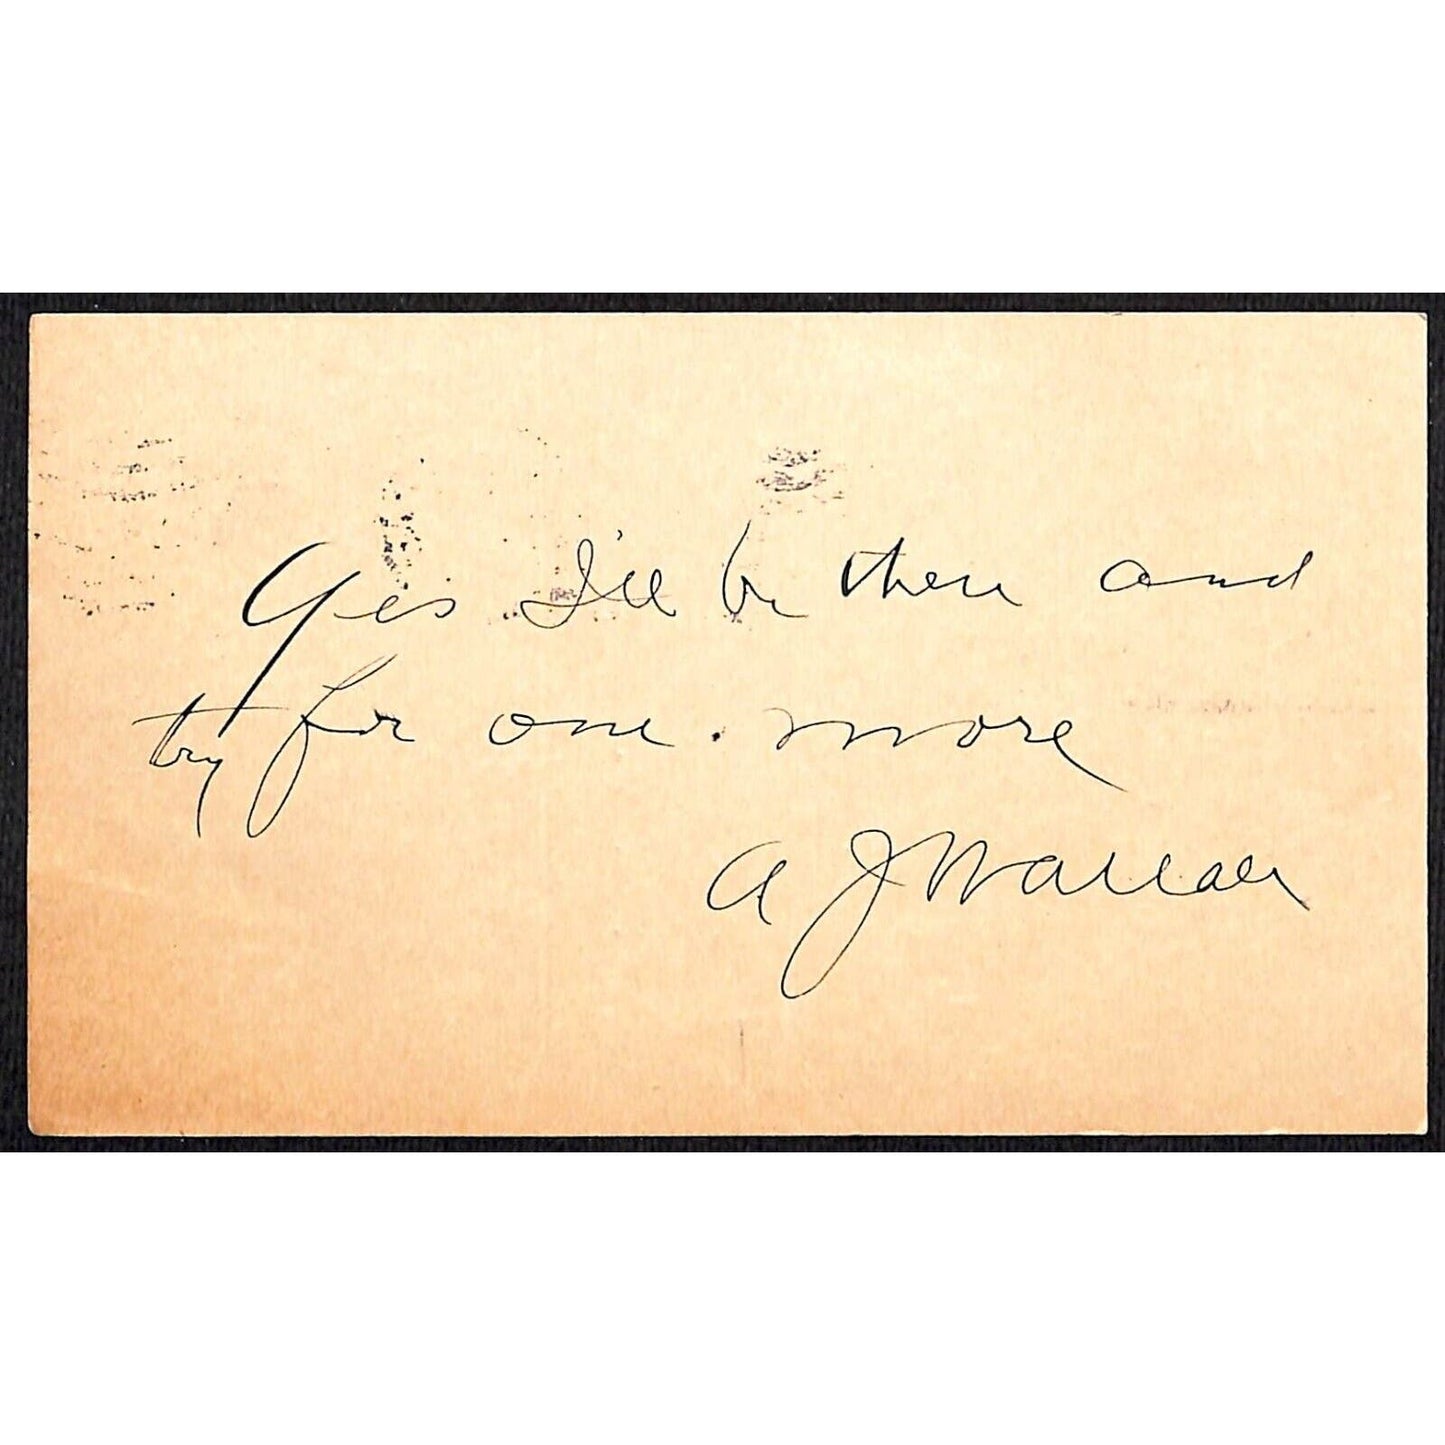 Yes I'll be there and
try for one . more
A J